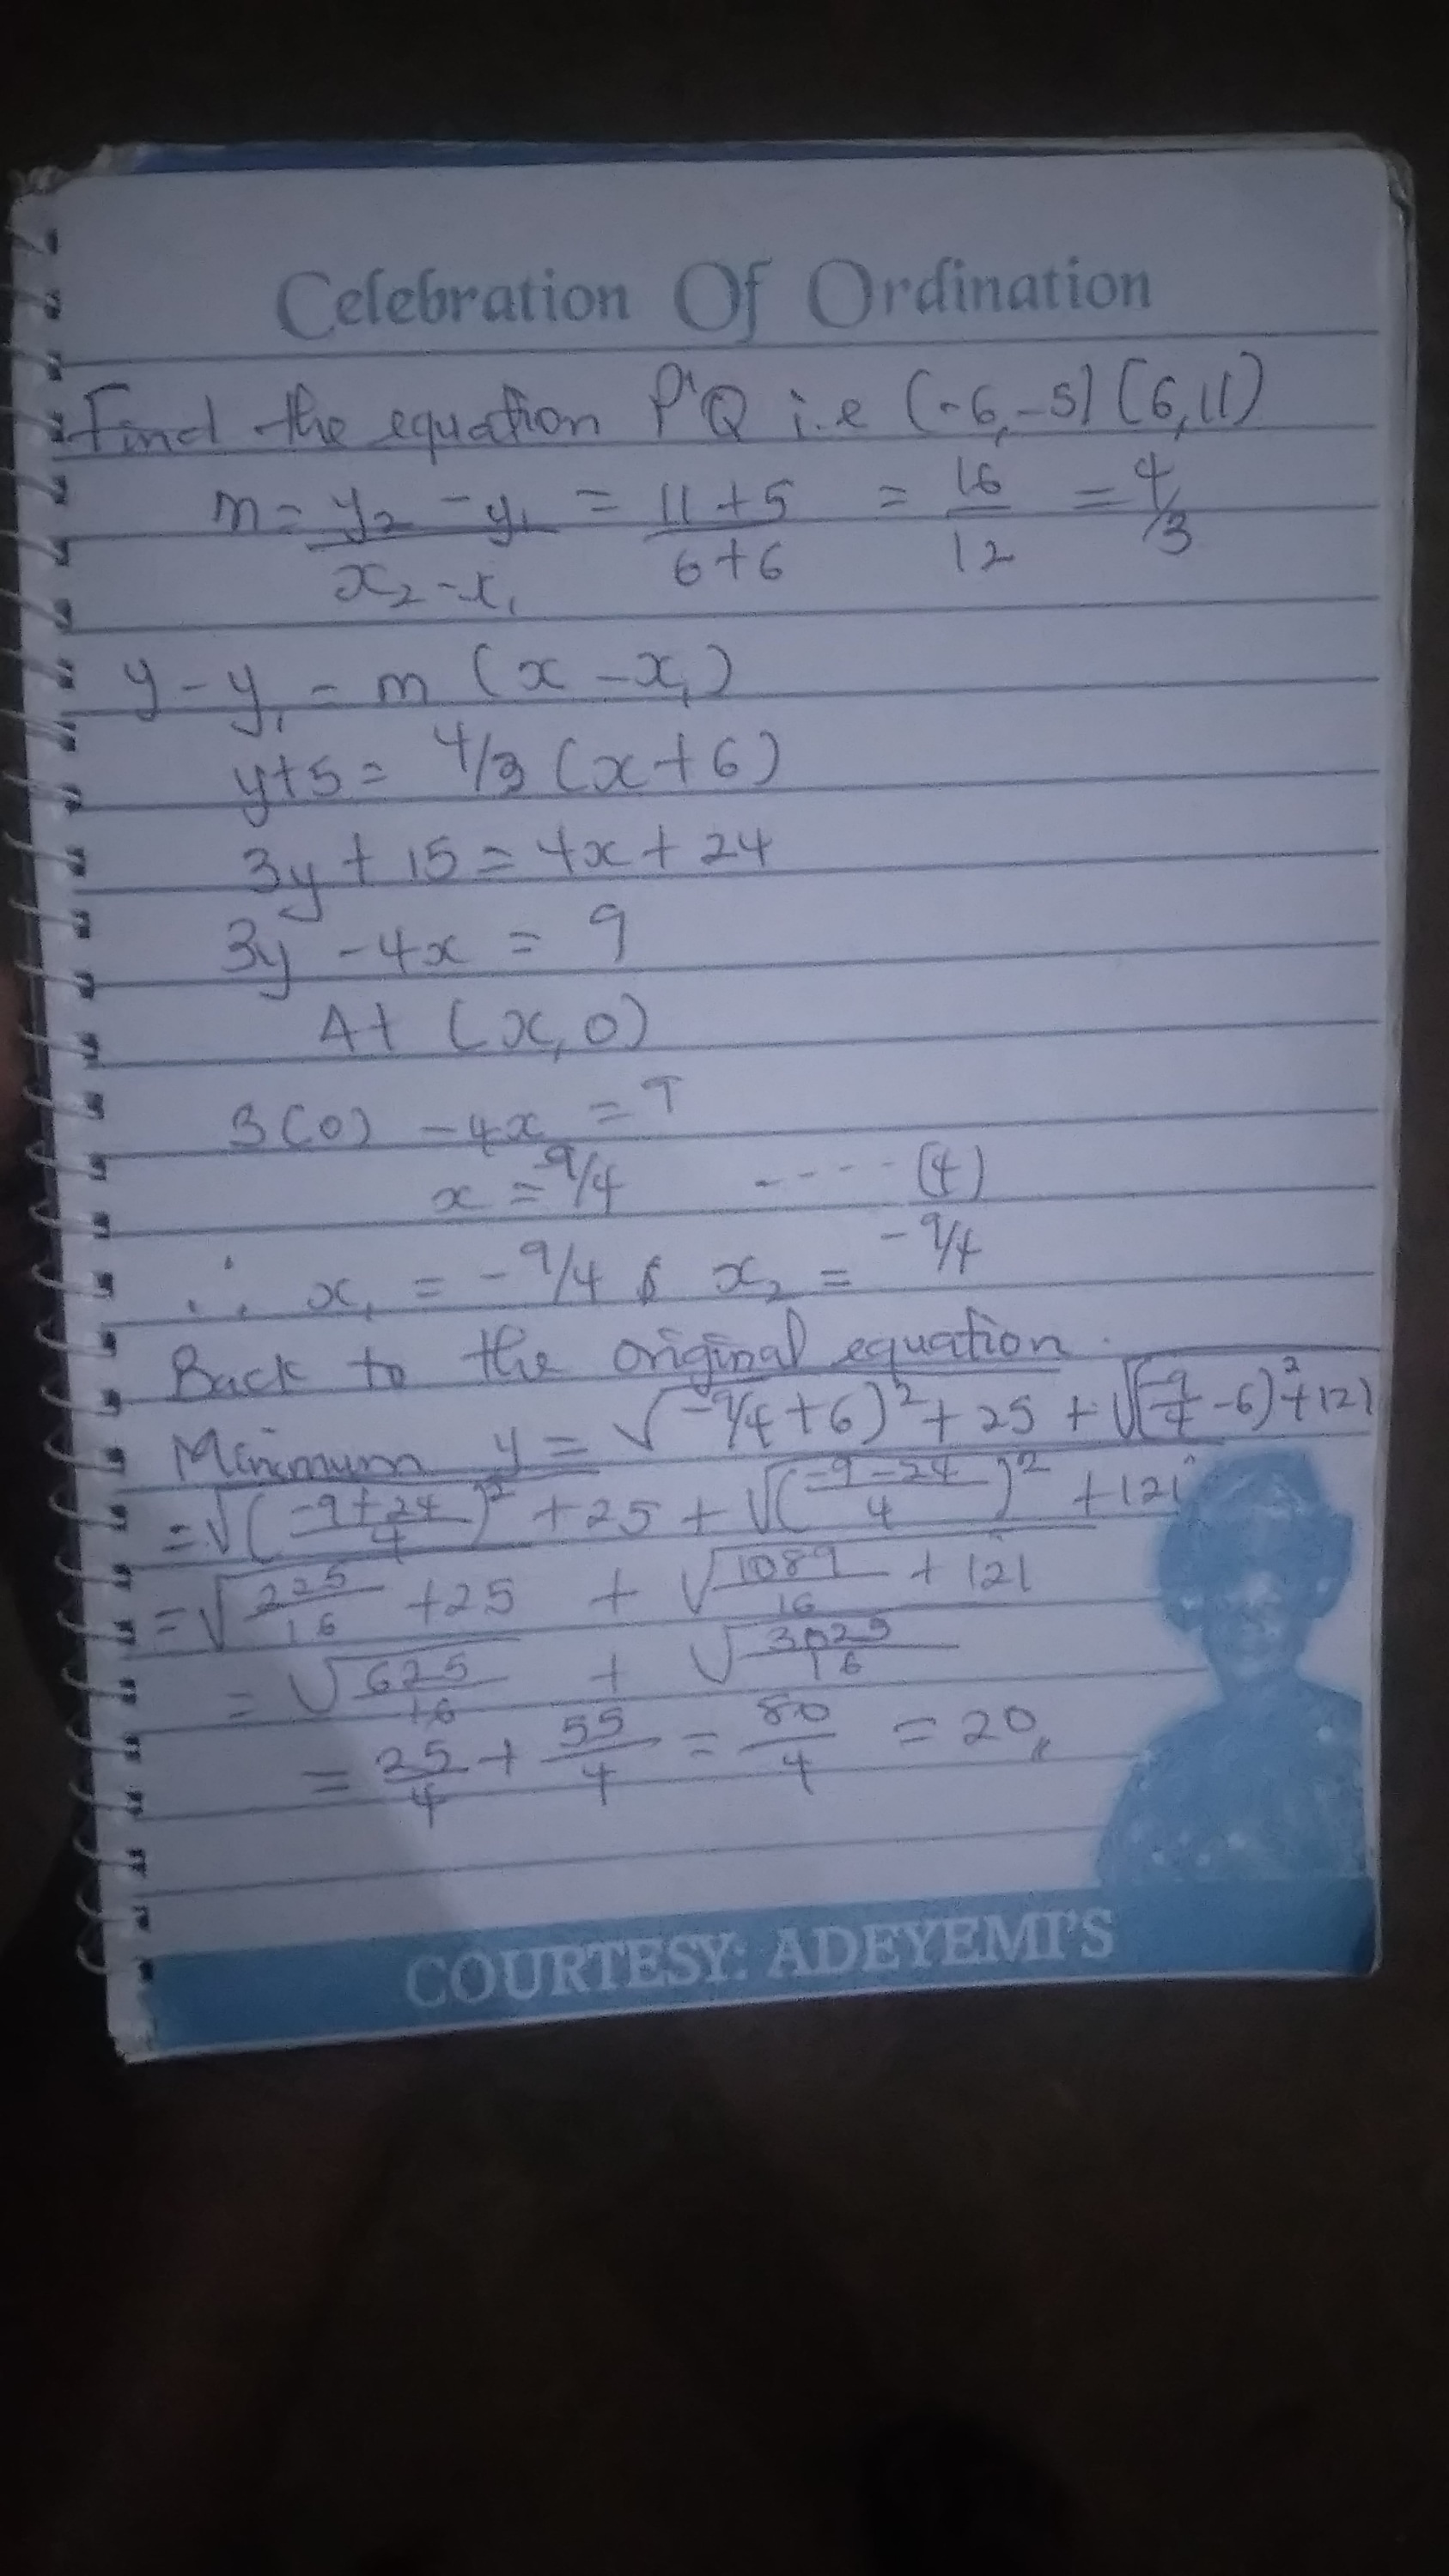 Celebration Of Ordination
Find the equation P'Q i.e (-6,-5) (6,11)
m = y₂ - y₁ / x₂ - x₁ = 11+5 / 6+6 = 16/12 = 4/3
y - y₁ = m (x - x₁)
y+5 = 4/3 (x+6)
3y + 15 = 4x + 24
3y - 4x = 9
At (x, 0)
3(0) - 4x = 9
x = -9/4 ---- (4)
∴ x₁ = -9/4 & x₂ = -9/4
Back to the original equation.
Minimum y = √(-9/4+6)² + 25 + √(-9/4 -6)² + 121
= √(-9+24 / 4)² + 25 + √(-9-24 / 4)² + 121
= √225/16 + 25 + √1089/16 + 121
= √625/16 + √3025/16
= 25/4 + 55/4 = 80/4 = 20,,
COURTESY: ADEYEMI'S